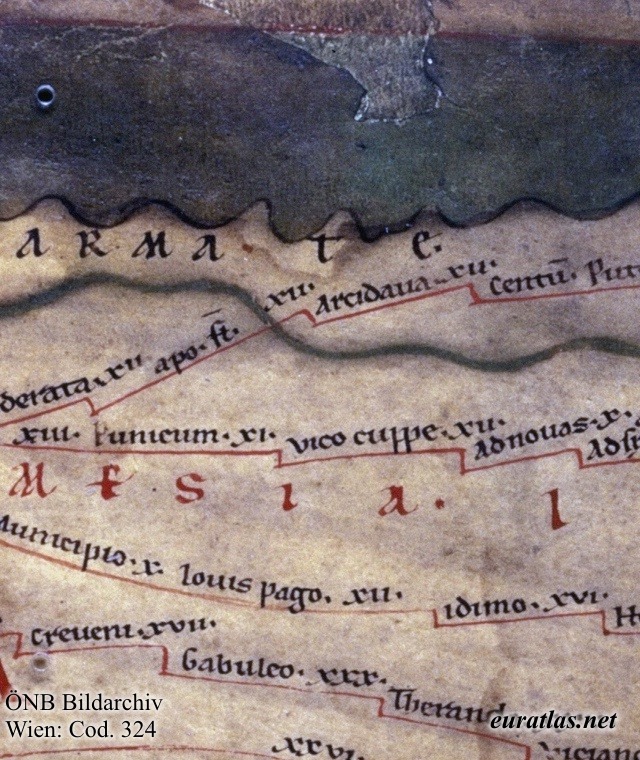 ARMATE.
derata. xii apo. fl. xii. Arcidaua. xii. Centū. Put
xiii. Punicum. xi. vico cuppe. xii. Ad nouas. x.
MESIA. I
Municipio. x. Iouis pago. xii. idimo. xvi.
Creueni. xvii. Gabuleo. xxx. Therand
xxvi. viciano
ÖNB Bildarchiv
Wien: Cod. 324
euratlas.net